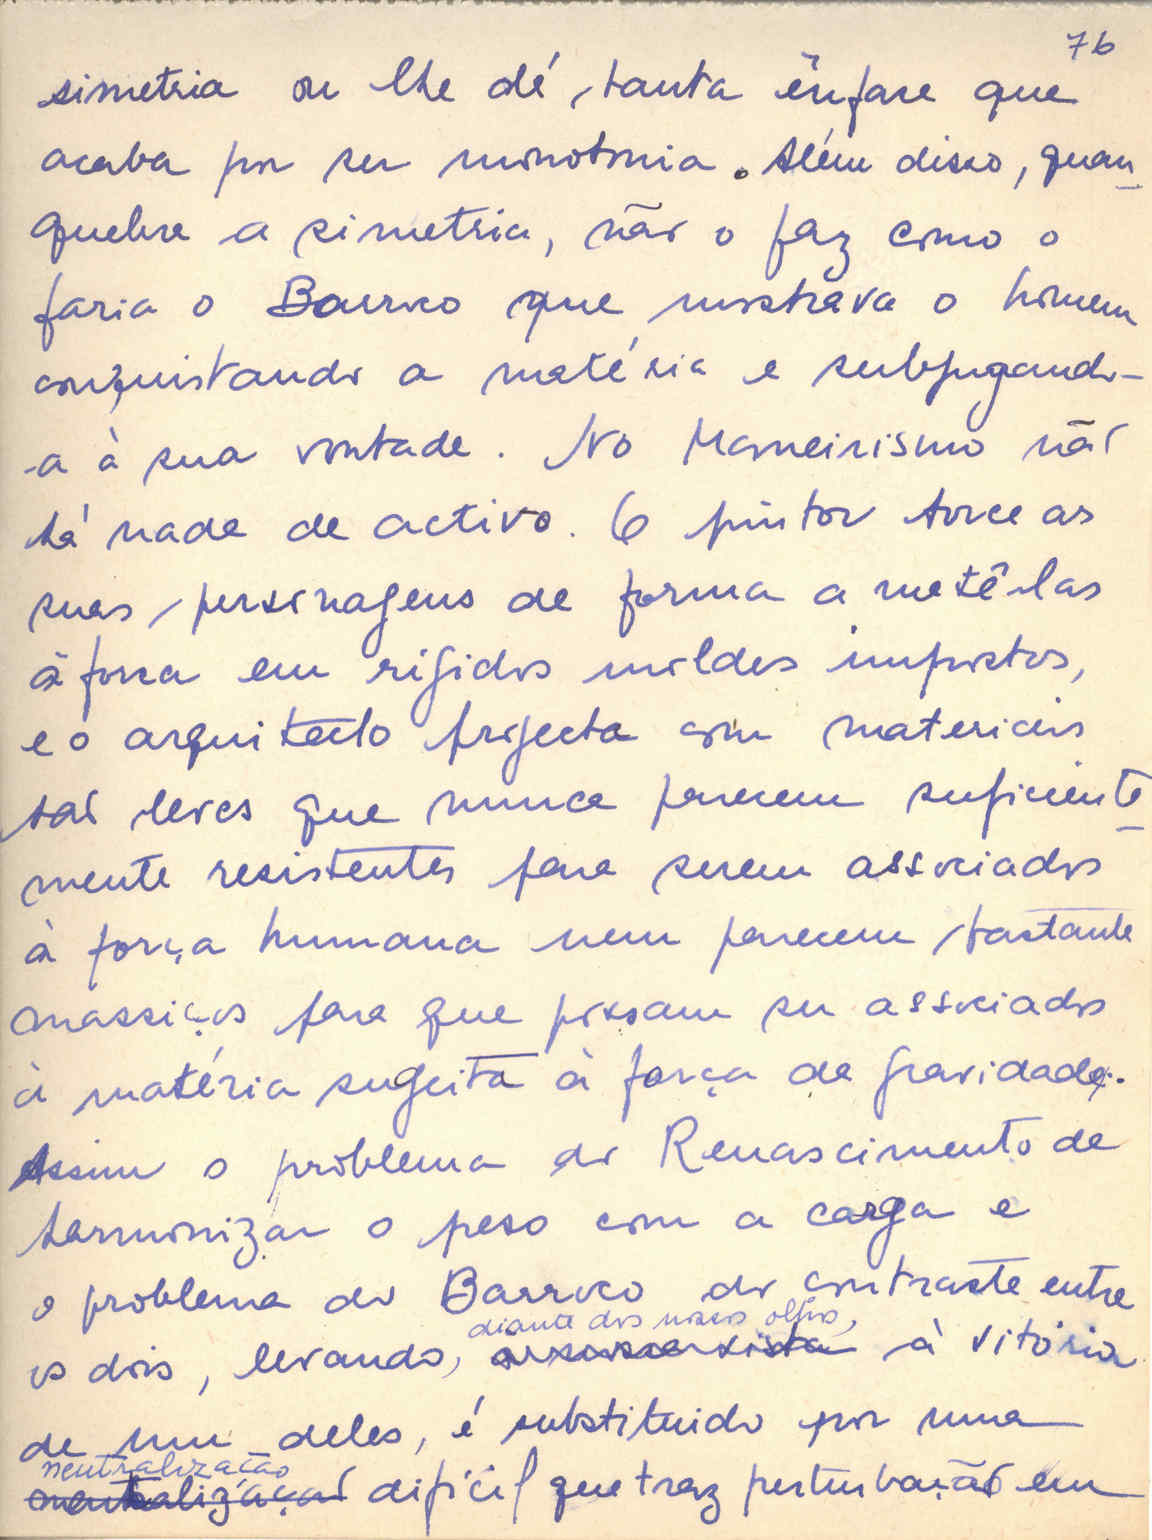 76
simetria ou lhe dá tanta ênfase que
acaba por ser monotonia. Além disso, quan_
quebra a simetria, não o faz como o
faria o Barroco que mostrava o homem
conquistando a matéria e subjugando-
-a à sua vontade. No Maneirismo não
há nada de activo. O pintor torce as
suas personagens de forma a metê-las
à força em rígidos moldes impostos,
e o arquitecto projecta com materiais
tão leves que nunca parecem suficiente_
mente resistentes para serem associados
à força humana nem parecem bastante
massiços para que possam ser associados
à matéria sugeita à força da gravidade.
Assim o problema do Renascimento de
harmonizar o peso com a carga e
o problema do Barroco do contraste entre
diante dos nossos olhos,
os dois, levando, à vitória
de um deles, é substituido por uma
neutralização
neutralização difícil que traz perturbação em